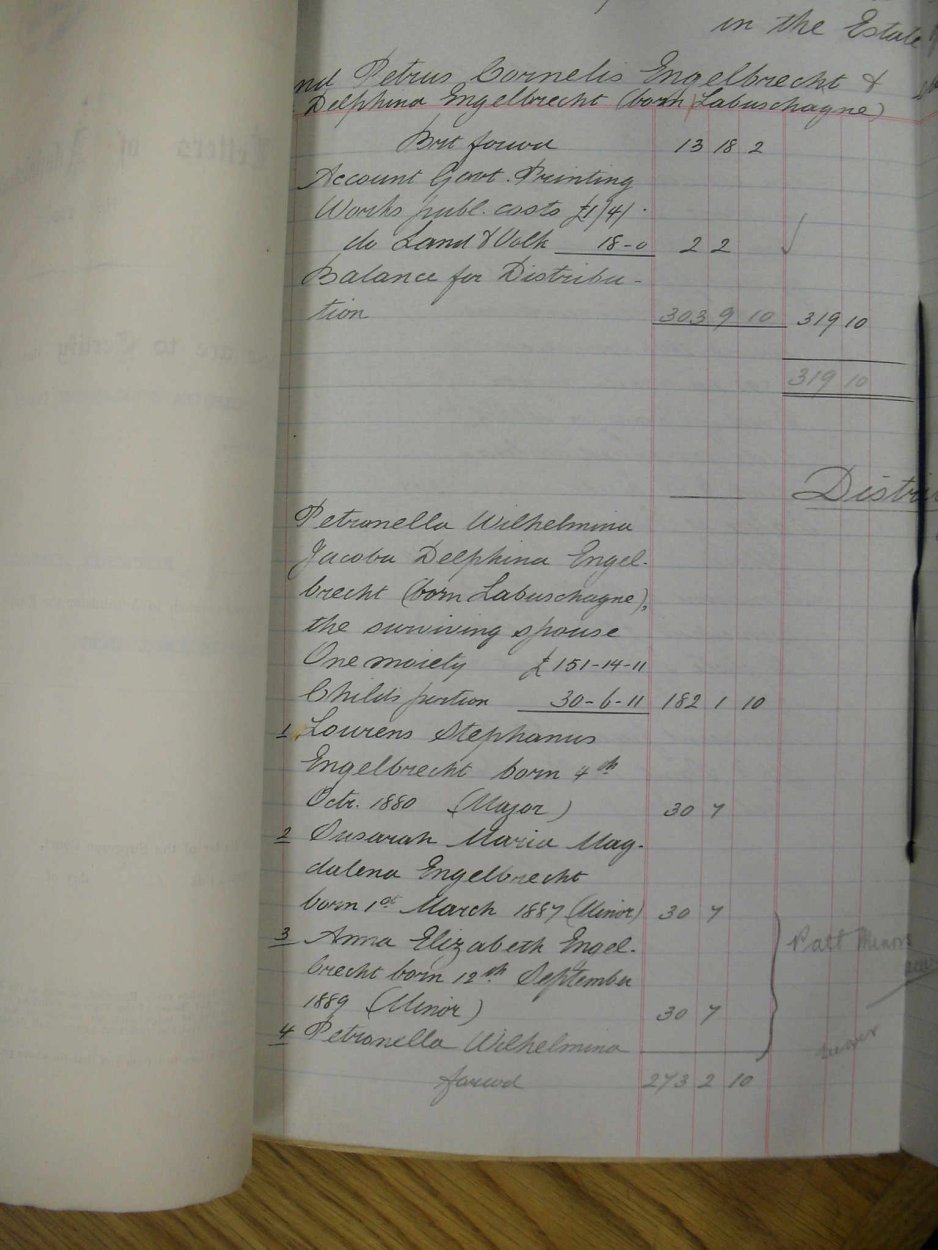 in the Estate
nd Petrus Cornelis Engelbrecht &
Delphina Engelbrecht (born Labuschagne)
Brt forwd 13 18 2
Account Govt. Printing
Works publ. costs £1/4/-
do Land & Volk 18-0 2 2
Balance for Distribu-
tion 303 9 10 319 10
319 10
Distri
Petronella Wilhelmina
Jacoba Delphina Engel-
brecht (born Labuschagne),
the surviving spouse
One moiety £151-14-11
Childs portion 30-6-11 182 1 10
1 Lourens Stephanus
Engelbrecht born 4th
Octr. 1880 (Major) 30 7
2 Susarah Maria Mag-
dalena Engelbrecht
born 1st March 1887 (Minor) 30 7
3 Anna Elizabeth Engel-
brecht born 12th September
1889 (Minor) 30 7
Minors
4 Petronella Wilhelmina
forwd 273 2 10